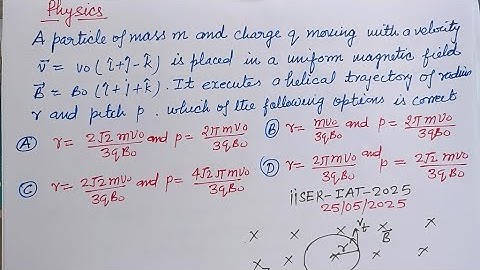 Physics
A particle of mass m and charge q moving with a velocity
v⃗ = v0 (î+ĵ-k̂) is placed in a uniform magnetic field
B⃗ = B0 (î+ĵ+k̂). It executes a helical trajectory of radius
r and pitch p. which of the following options is correct
(A) r = 2√2 mv0/3qB0 and p = 2πmv0/3qB0 (B) r = mv0/3qB0 and p = 2πmv0/3qB0
(C) r = 2√2 mv0/3qB0 and p = 4√2πmv0/3qB0 (D) r = 2πmv0/3qB0 and p = 2√2 mv0/3qB0
iiSER-IAT-2025
25/05/2025
x x x x x
B⃗
r
x x x x